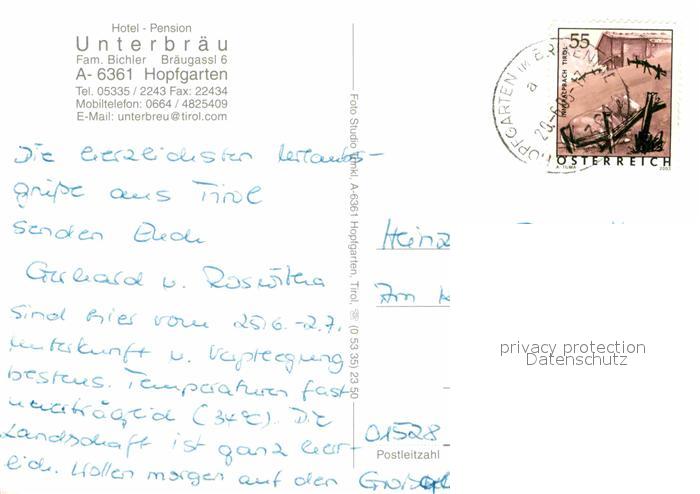 Hotel - Pension
Unterbräu
Fam. Bichler Bräugassl 6
A- 6361 Hopfgarten
Tel. 05335 / 2243 Fax: 22434
Mobiltelefon: 0664 / 4825409
E-Mail: unterbreu@tirol.com
Die herzlichsten Urlaubs-
grüße aus Tirol
senden Euch
Gerhard u. Roswitha
Sind hier vom 25.6.-2.7.
Unterkunft u. Verpflegung
bestens. Temperaturen fast
unerträglich (34°C). Die
Landschaft ist ganz herr-
lich. Wollen morgen auf den
Foto Studio A-6361 Hopfgarten, Tirol, ☏ (0 53 35) 23 50
55
TIROL
ÖSTERREICH
2003
HOPFGARTEN IM
a
Heinz
Am
01528
Postleitzahl
privacy protection
Datenschutz